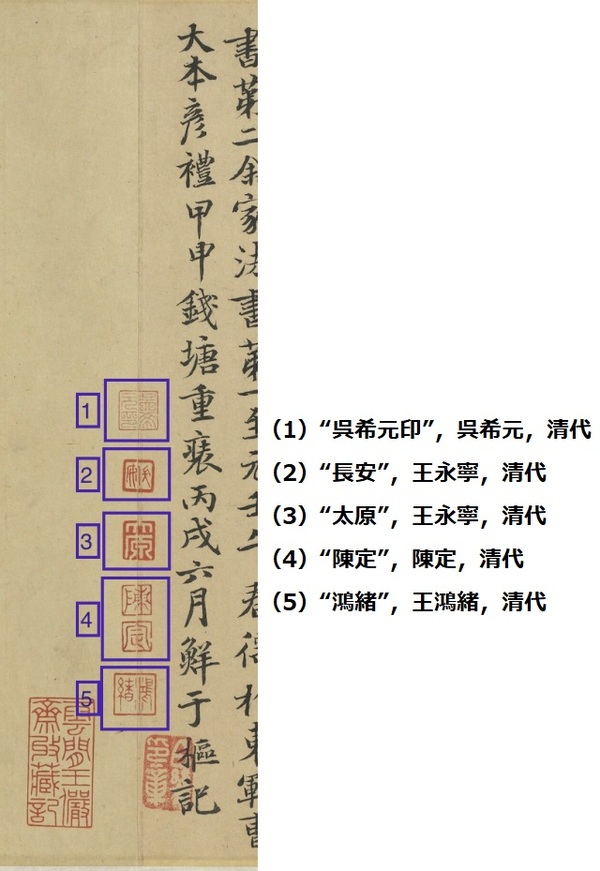 書第二余家法書第一至元壬午春得於東軍曹
大本彥禮甲申錢塘重裝丙戌六月鮮于樞記
1
2
3
4
陳定
5
鴻緒
雲間王儼
齋收藏記
（1）“吳希元印”，吳希元，清代
（2）“長安”，王永寧，清代
（3）“太原”，王永寧，清代
（4）“陳定”，陳定，清代
（5）“鴻緒”，王鴻緒，清代